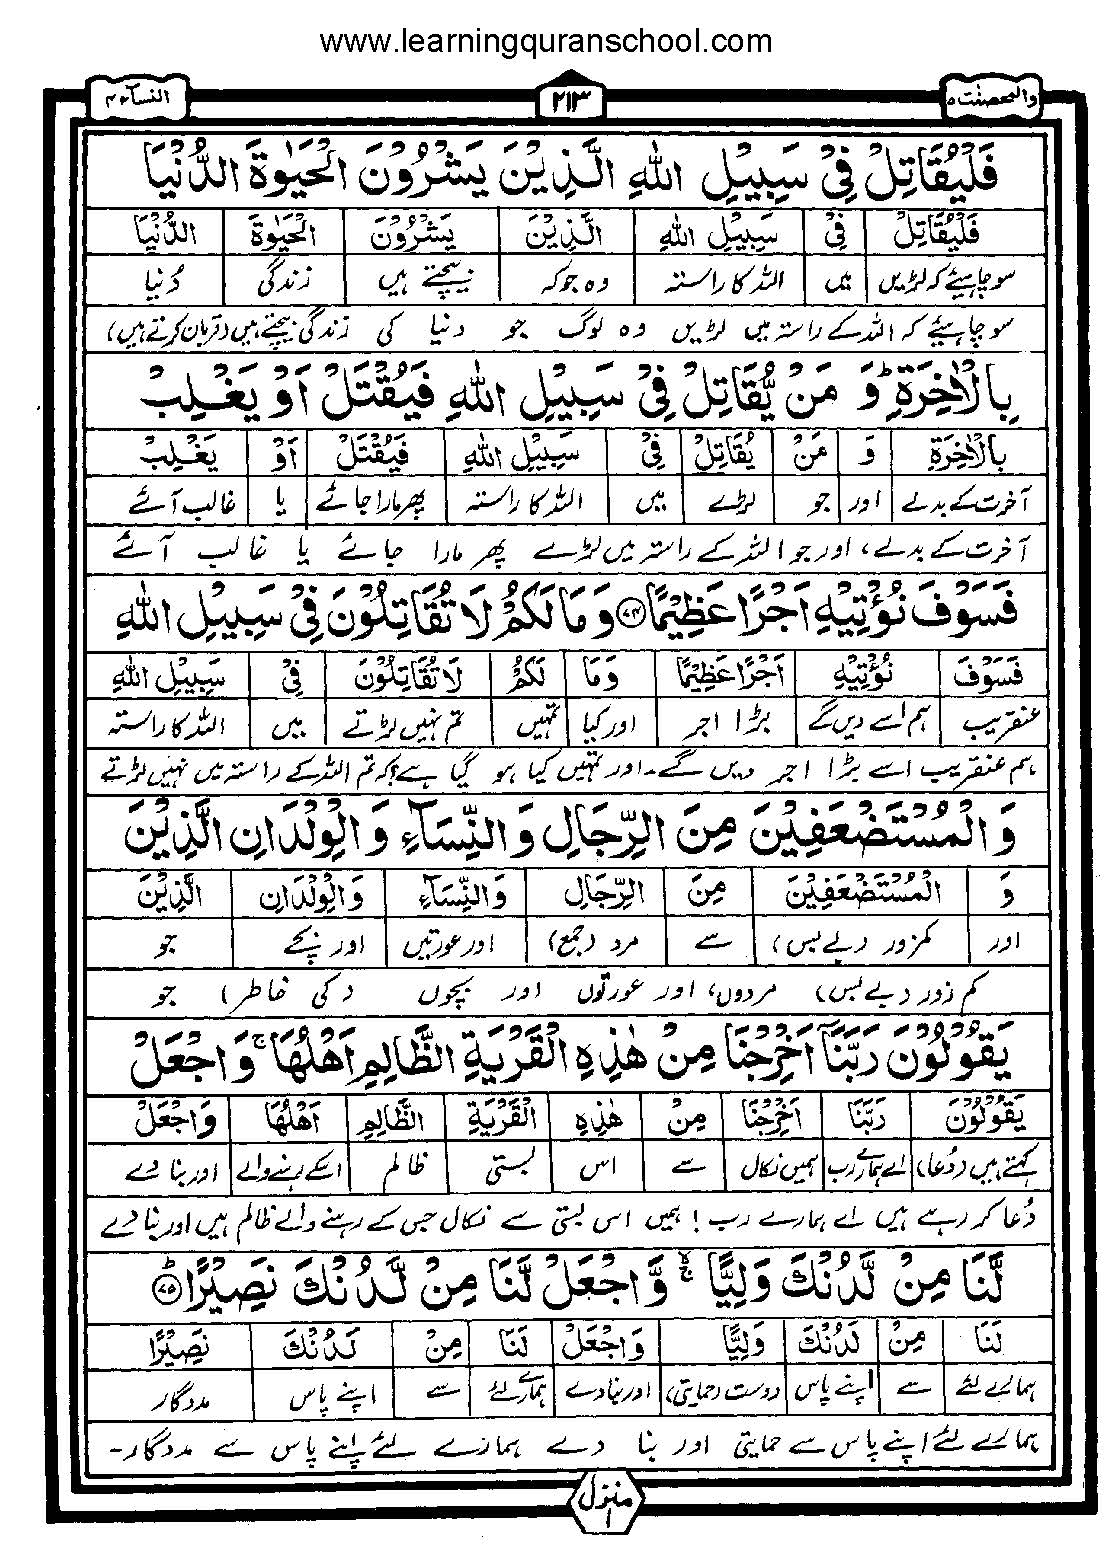 www.learningquranschool.com
والمحصنٰت ۵ ۲۱۳ النسآء ۴
فَلْيُقَاتِلْ فِيْ سَبِيْلِ اللّٰهِ الَّذِيْنَ يَشْرُوْنَ الْحَيٰوةَ الدُّنْيَا
فَلْيُقَاتِلْ فِيْ سَبِيْلِ اللّٰهِ الَّذِيْنَ يَشْرُوْنَ الْحَيٰوةَ الدُّنْيَا
سو چاہیئے کہ لڑیں میں اللہ کا راستہ وہ جو کہ بیچتے ہیں زندگی دُنیا
سو چاہیئے کہ اللہ کے راستہ میں لڑیں وہ لوگ جو دنیا کی زندگی بیچتے ہیں (قربان کرتے ہیں)
بِالْاٰخِرَةِ ؕ وَ مَنْ يُّقَاتِلْ فِيْ سَبِيْلِ اللّٰهِ فَيُقْتَلْ اَوْ يَغْلِبْ
بِالْاٰخِرَةِ وَ مَنْ يُقَاتِلْ فِيْ سَبِيْلِ اللّٰهِ فَيُقْتَلْ اَوْ يَغْلِبْ
آخرت کے بدلے اور جو لڑے میں اللہ کا راستہ پھر مارا جائے یا غالب آئے
آخرت کے بدلے، اور جو اللہ کے راستہ میں لڑے پھر مارا جائے یا غالب آئے
فَسَوْفَ نُؤْتِيْهِ اَجْرًا عَظِيْمًا ۷۴ وَمَا لَكُمْ لَا تُقَاتِلُوْنَ فِيْ سَبِيْلِ اللّٰهِ
فَسَوْفَ نُؤْتِيْهِ اَجْرًا عَظِيْمًا وَمَا لَكُمْ لَا تُقَاتِلُوْنَ فِيْ سَبِيْلِ اللّٰهِ
عنقریب ہم اسے دیں گے بڑا اجر اور کیا تمہیں تم نہیں لڑتے میں اللہ کا راستہ
ہم عنقریب اسے بڑا اجر دیں گے۔ اور تمہیں کیا ہو گیا ہے؟ کہ تم اللہ کے راستہ میں نہیں لڑتے
وَ الْمُسْتَضْعَفِيْنَ مِنَ الرِّجَالِ وَ النِّسَآءِ وَ الْوِلْدَانِ الَّذِيْنَ
وَ الْمُسْتَضْعَفِيْنَ مِنَ الرِّجَالِ وَالنِّسَآءِ وَالْوِلْدَانِ الَّذِيْنَ
اور کمزور (بے بس) سے مرد (جمع) اور عورتیں اور بچے جو
کم زور (بے بس) مردوں، اور عورتوں اور بچوں (کی خاطر) جو
يَقُوْلُوْنَ رَبَّنَاۤ اَخْرِجْنَا مِنْ هٰذِهِ الْقَرْيَةِ الظَّالِمِ اَهْلُهَا ۚ وَ اجْعَلْ
يَقُوْلُوْنَ رَبَّنَا اَخْرِجْنَا مِنْ هٰذِهِ الْقَرْيَةِ الظَّالِمِ اَهْلُهَا وَاجْعَلْ
کہتے ہیں (دُعا) اے ہمارے رب ہمیں نکال سے اس بستی ظالم اسکے رہنے والے اور بنا دے
دُعا کر رہے ہیں اے ہمارے رب! ہمیں اس بستی سے نکال جس کے رہنے والے ظالم ہیں اور بنا دے
لَّنَا مِنْ لَّدُنْكَ وَلِيًّا ۙۚ وَّ اجْعَلْ لَّنَا مِنْ لَّدُنْكَ نَصِيْرًا ۷۵
لَنَا مِنْ لَدُنْكَ وَلِيًّا وَاجْعَلْ لَنَا مِنْ لَدُنْكَ نَصِيْرًا
ہمارے لئے سے اپنے پاس دوست (حمایتی) اور بنا دے ہمارے لئے سے اپنے پاس مددگار
ہمارے لئے اپنے پاس سے حمایتی اور بنا دے ہمارے لئے اپنے پاس سے مددگار۔
منزل ۱